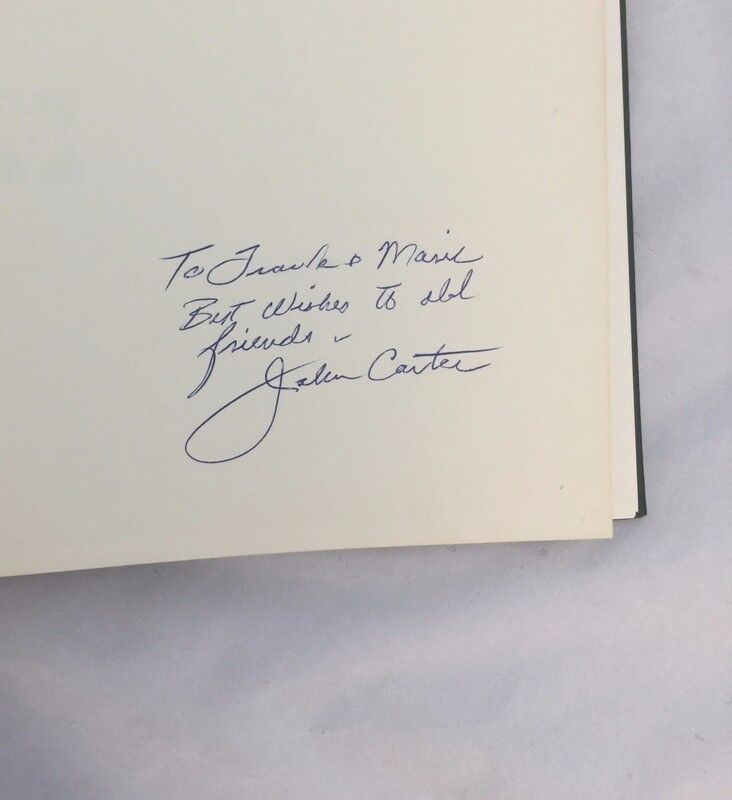 To Frank & Marie
Best Wishes to old
friends -
John Carter